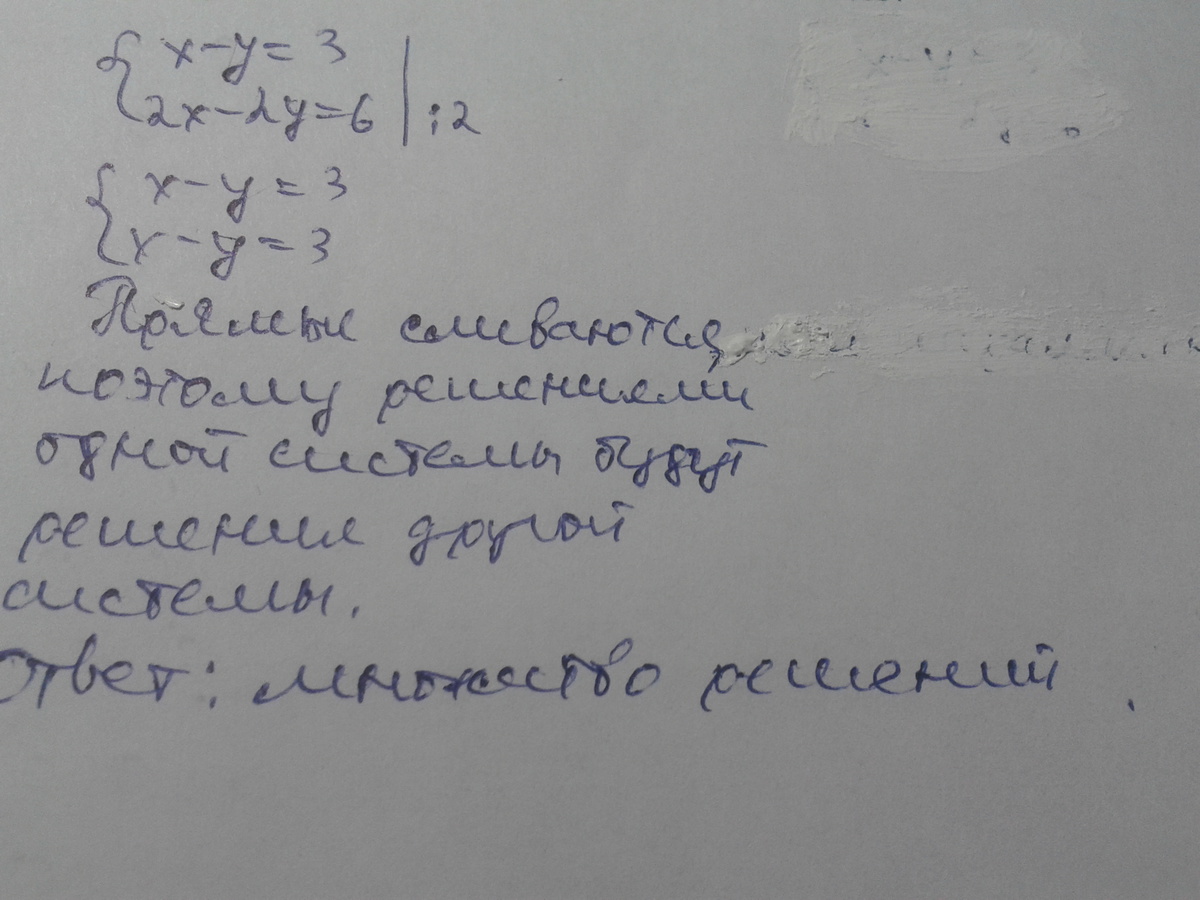 { x-y=3
2x-2y=6 | :2
{ x-y=3
x-y=3
Прямые сливаются,
поэтому решениями
одной системы будут
решения другой
системы.
Ответ: множество решений.